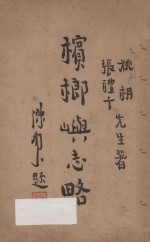 姚枬
張禮千 先生著
檳榔嶼志略
陳育崧題